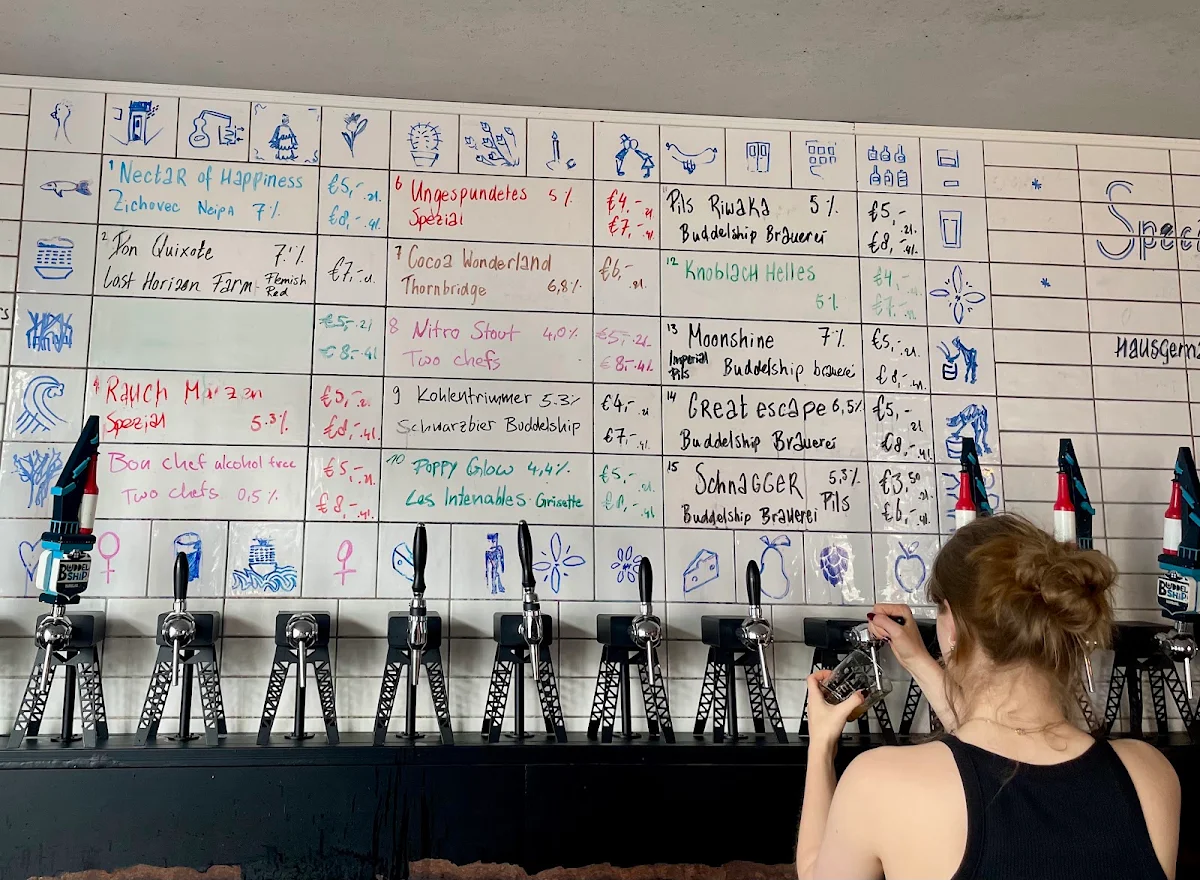 1 Nectar of Happiness
Zichovec Neipa 7%
€5,- .2l.
€8,- .4l.
2 Don Quixote 7%
Lost Horizon Farm Flemish Red
€7,- .2l
€5,- .2l
€8,- .4l
4 Rauch Märzen
Spezial 5.3%
€5,- .2l.
€8,- .4l.
Bon chef alcohol free
Two chefs 0,5%
€5,- .2l.
€8,- .4l.
6 Ungespundetes 5%
Spezial
€4,- .2l
€7,- .4l.
7 Cocoa Wonderland
Thornbridge 6,8%
€6,- .2l.
8 Nitro Stout 4,0%
Two chefs
€5,- .2l.
€8,- .4l.
9 Kohlentrimmer 5.3%
Schwarzbier Buddelship
€4,- .2l
€7,- .4l.
10 Poppy Glow 4,4%
Les Intenables Grisette
€5,- .2l.
€8,- .4l.
11 Pils Riwaka 5%
Buddelship Brauerei
€5,- .2l.
€8,- .4l.
12 Knoblach Helles
5%
€4,- .2l
€7,- .4l
13 Moonshine 7%
Imperial Pils Buddelship brauerei
€5,- .2l.
€8,- .4l.
14 Great escape 6,5%
Buddelship Brauerei
€5,- .2l
€8,- .4l.
15 Schnagger 5,3%
Pils
Buddelship Brauerei
€3,50 .2l
€6,- .4l.
Speci
Hausgema
BUDDEL
SHIP
BUDDEL
SHIP